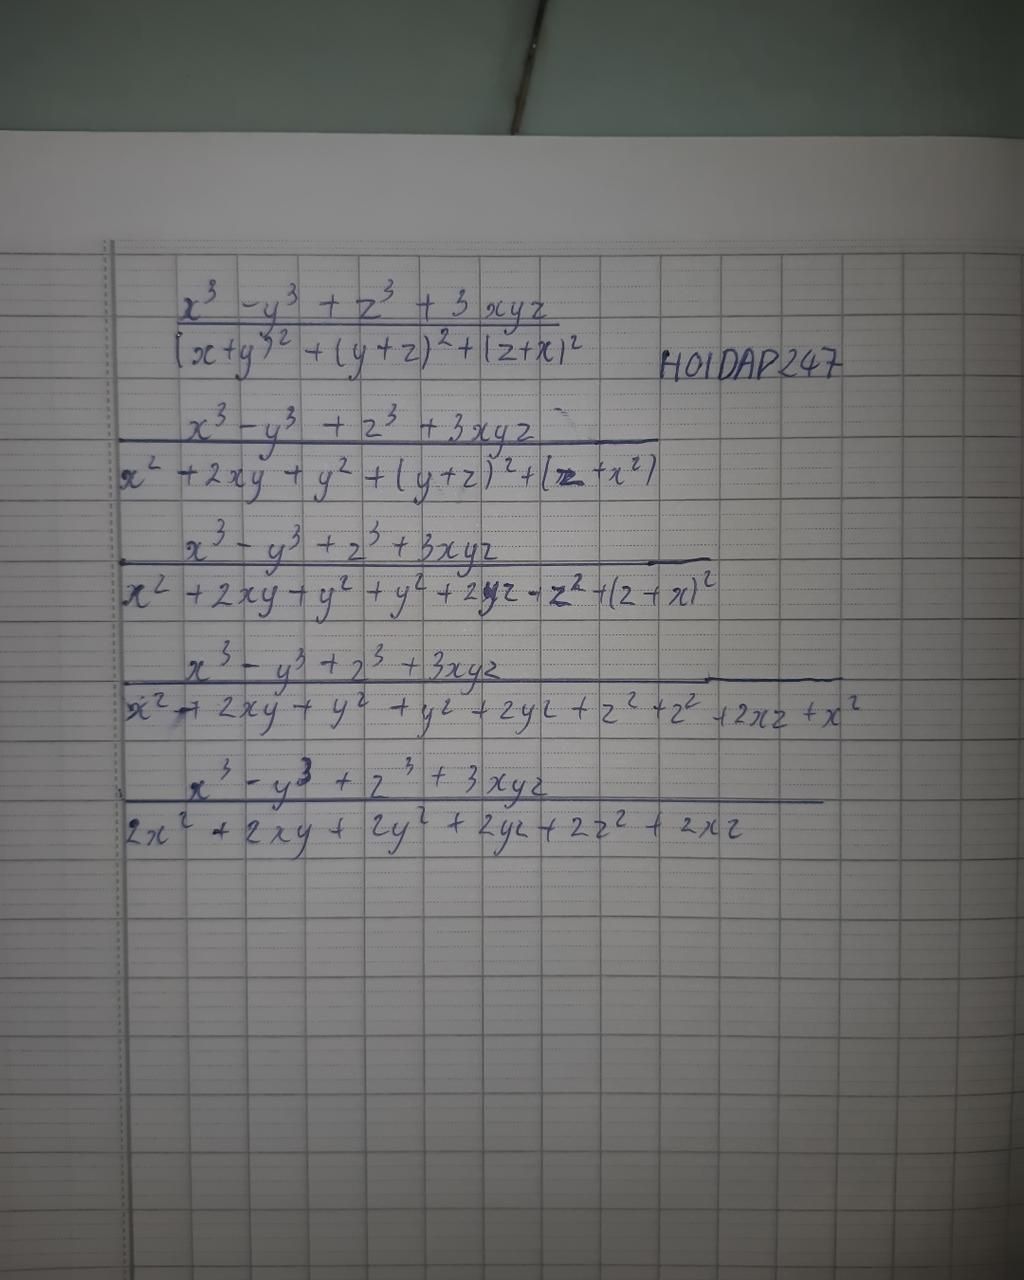 x³ - y³ + z³ + 3xyz
(x+y)² + (y+z)² + (z+x)²
HOIDAP247
x³ - y³ + z³ + 3xyz
x² + 2xy + y² + (y+z)² + (z+x²)
x³ - y³ + z³ + 3xyz
x² + 2xy + y² + y² + 2yz + z² + (z+x)²
x³ - y³ + z³ + 3xyz
x² + 2xy + y² + y² + 2yz + z² + z² + 2xz + x²
x³ - y³ + z³ + 3xyz
2x² + 2xy + 2y² + 2yz + 2z² + 2xz